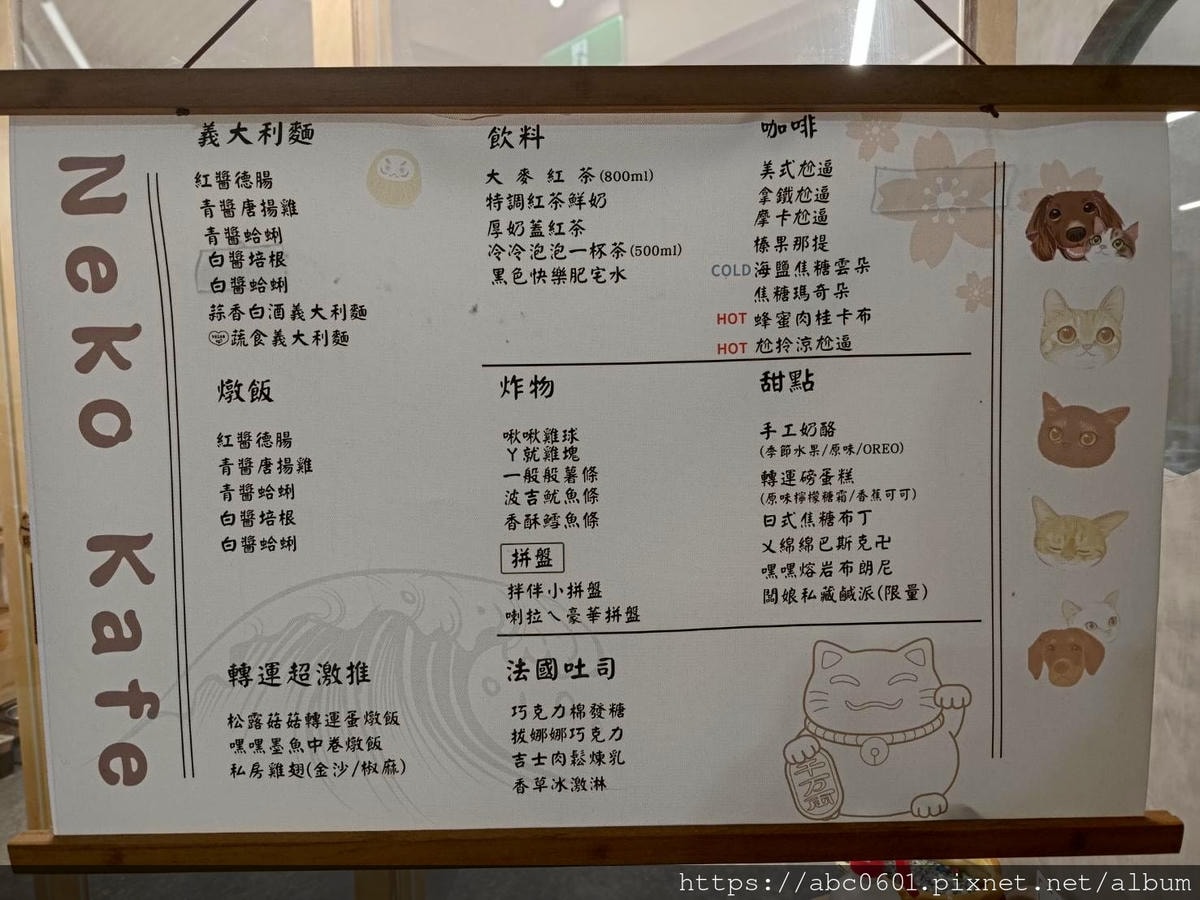 Neko Kafe
義大利麵
紅醬德腸
青醬唐揚雞
青醬蛤蜊
白醬培根
白醬蛤蜊
蒜香白酒義大利麵
蔬食義大利麵
燉飯
紅醬德腸
青醬唐揚雞
青醬蛤蜊
白醬培根
白醬蛤蜊
轉運超激推
松露菇菇轉運蛋燉飯
嘿嘿墨魚中卷燉飯
私房雞翅(金沙/椒麻)
飲料
大麥紅茶(800ml)
特調紅茶鮮奶
厚奶蓋紅茶
冷冷泡泡一杯茶(500ml)
黑色快樂肥宅水
咖啡
美式尬逼
拿鐵尬逼
摩卡尬逼
榛果那提
COLD 海鹽焦糖雲朵
焦糖瑪奇朵
HOT 蜂蜜肉桂卡布
HOT 尬拎涼尬逼
炸物
啾啾雞球
ㄚ就雞塊
一般般薯條
波吉魷魚條
香酥鱈魚條
拼盤
拌伴小拼盤
喇拉ㄟ豪華拼盤
甜點
手工奶酪
(季節水果/原味/OREO)
轉運磅蛋糕
(原味檸檬糖霜/香蕉可可)
日式焦糖布丁
ㄨ綿綿巴斯克卍
嘿嘿熔岩布朗尼
闆娘私藏鹹派(限量)
法國吐司
巧克力棉發糖
拔娜娜巧克力
吉士肉鬆煉乳
香草冰激淋
千万両
https://abc0601.pixnet.net/album